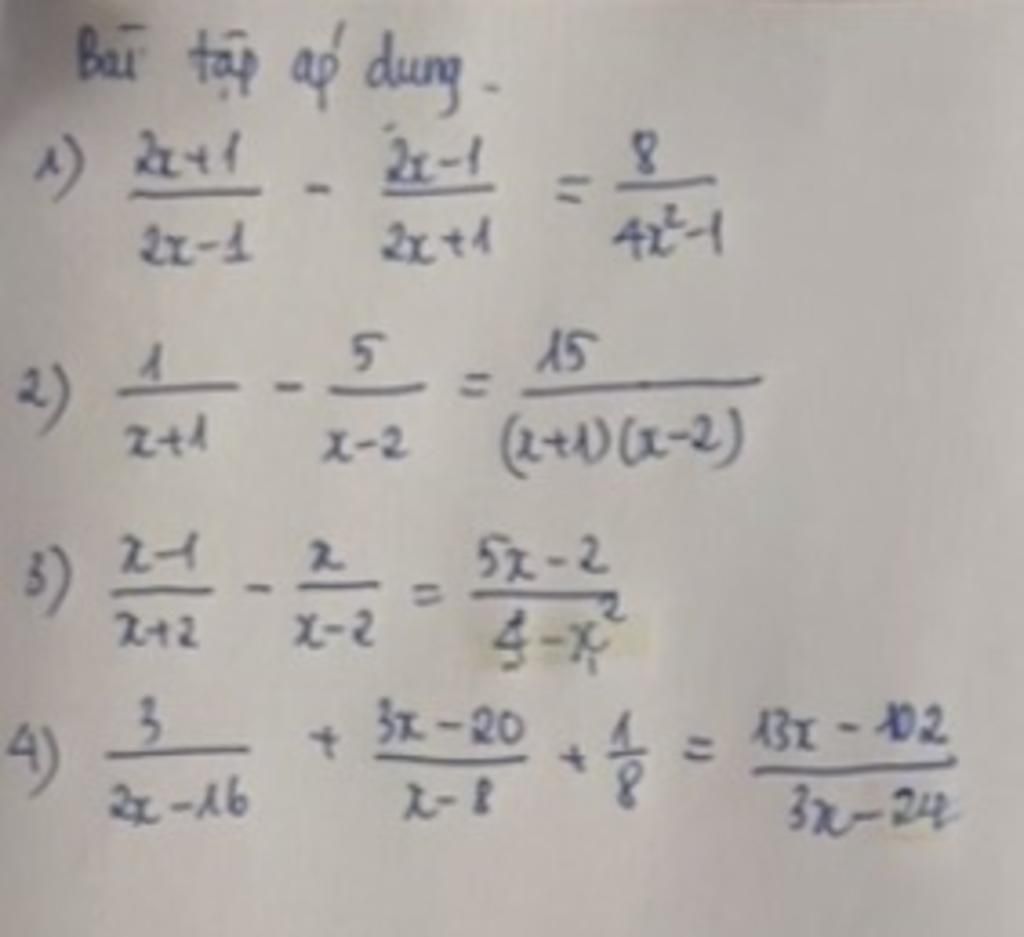 Bài tập áp dung.
1) (2x+1)/(2x-1) - (2x-1)/(2x+1) = 8/(4x²-1)
2) 1/(x+1) - 5/(x-2) = 15/((x+1)(x-2))
3) (x-1)/(x+2) - x/(x-2) = (5x-2)/(4-x²)
4) 3/(2x-16) + (3x-20)/(x-8) + 1/8 = (13x-102)/(3x-24)